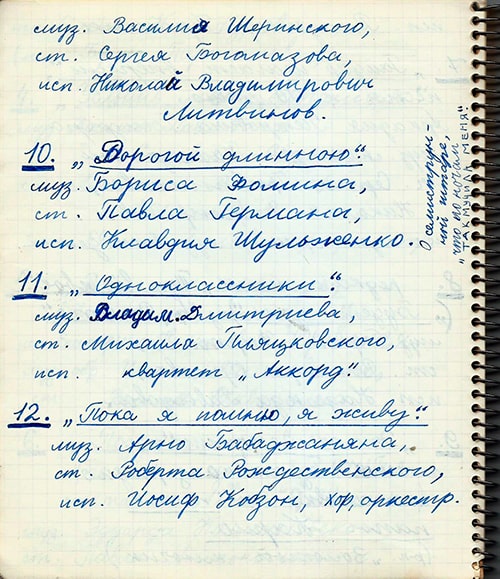 муз. Василия Шеринского,
ст. Сергея Богомазова,
исп. Николай Владимирович
Литвинов.
10. „Дорогой длинною".
муз. Бориса Фомина,
ст. Павла Германа,
исп. Клавдия Шульженко.
О семиструн-
ной гитаре,
„что по ночам
так мучила меня".
11. „Одноклассники".
муз. Владим. Дмитриева,
ст. Михаила Пляцковского,
исп. квартет „Аккорд".
12. „Пока я помню, я живу".
муз. Арно Бабаджаняна,
ст. Роберта Рождественского,
исп. Иосиф Кобзон, хор, оркестр.